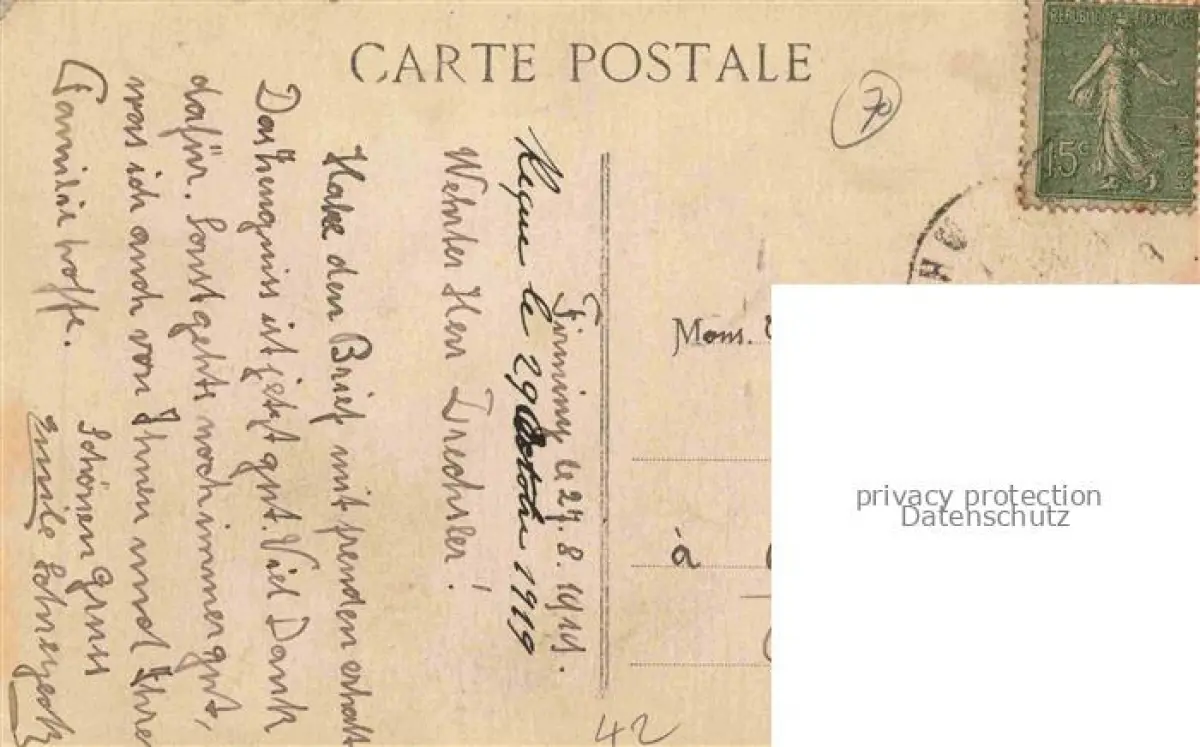 CARTE POSTALE
70
REPUBLIQUE FRANCAISE
15c
Firminy le 27. 8. 1919.
Reçue le 29 Octobre 1919
Wehrter Herr Drechsler!
Habe den Brief mit freuden erhalt
Das Zengniss ist jetzt gut. Viel Dank
dafür. Sonst gehts noch immer gut,
was ich auch von Ihnen und Ihre
Familie hoffe.
Schönen Gruss
Emile
Mons.
à
42
privacy protection
Datenschutz